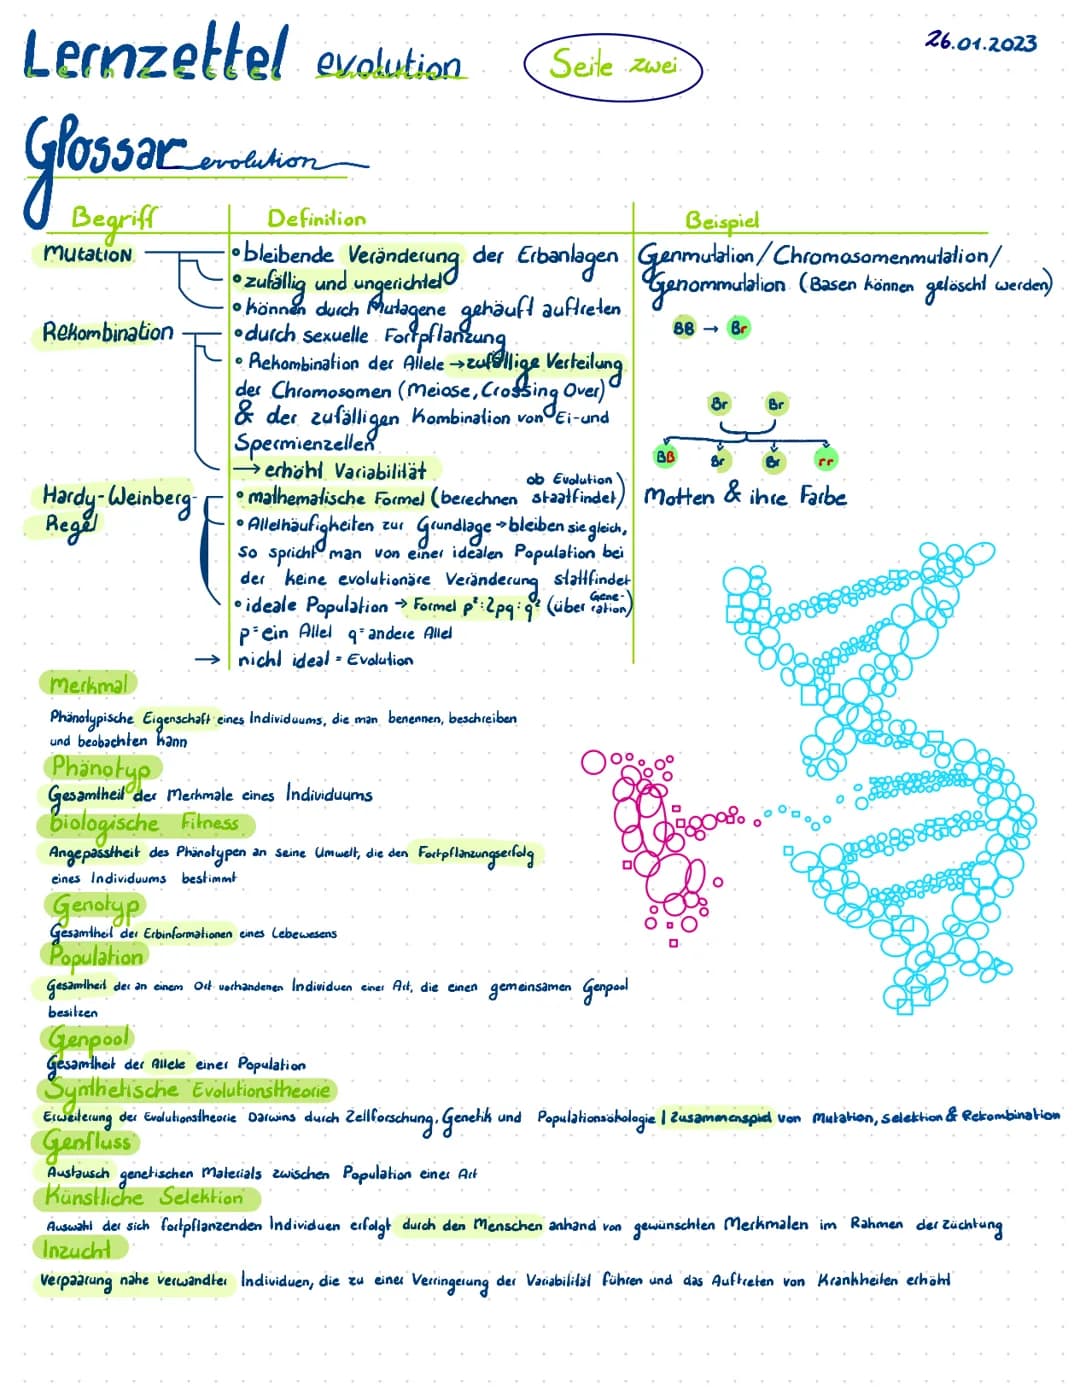 Lernzettel evolution Seite zwei 26.01.2023
Glossar evolution
Begriff Definition Beispiel
Mutation
• bleibende Veränderung der Erbanlagen
• zufällig und ungerichtet
• können durch Mutagene gehäuft auftreten
Genmutation/Chromosomenmutation/
Genommutation (Basen können gelöscht werden)
BB → Br
Rekombination
• durch sexuelle Fortpflanzung
• Rekombination der Allele → zufällige Verteilung
der Chromosomen (Meiose, Crossing Over)
& der zufälligen Kombination von Ei- und
Spermienzellen
→ erhöht Variabilität
Br Br
BB Br Br rr
Hardy-Weinberg-
Regel
• mathematische Formel (berechnen ob Evolution staatfindet)
• Allelhäufigkeiten zur Grundlage → bleiben sie gleich,
so spricht man von einer idealen Population bei
der keine evolutionäre Veränderung stattfindet
• ideale Population → Formel p²:2pq:q² (über Gene-ration)
p = ein Allel q = andere Allel
→ nicht ideal = Evolution
Motten & ihre Farbe
Merkmal
Phänotypische Eigenschaft eines Individuums, die man benennen, beschreiben
und beobachten kann
Phänotyp
Gesamtheit der Merkmale eines Individuums
biologische Fitness
Angepasstheit des Phänotypen an seine Umwelt, die den Fortpflanzungserfolg
eines Individuums bestimmt
Genotyp
Gesamtheit der Erbinformationen eines Lebewesens
Population
Gesamtheit der an einem Ort vorhandenen Individuen einer Art, die einen gemeinsamen Genpool
besitzen
Genpool
Gesamtheit der Allele einer Population
Synthetische Evolutionstheorie
Erweiterung der Evolutionstheorie Darwins durch Zellforschung, Genetik und Populationsökologie | Zusammenspiel von Mutation, Selektion & Rekombination
Genfluss
Austausch genetischen Materials zwischen Population einer Art
Künstliche Selektion
Auswahl der sich fortpflanzenden Individuen erfolgt durch den Menschen anhand von gewünschten Merkmalen im Rahmen der Züchtung
Inzucht
Verpaarung nahe verwandter Individuen, die zu einer Verringerung der Variabilität führen und das Auftreten von Krankheiten erhöht